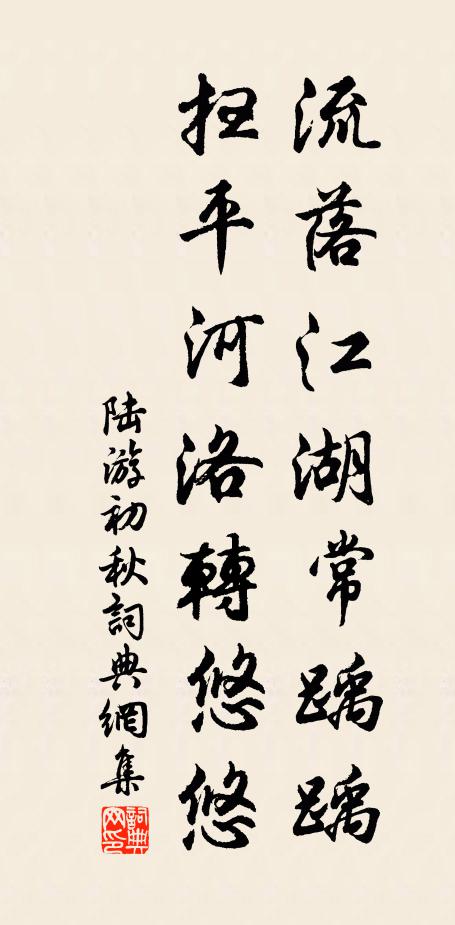 流落江湖常踽踽
扫平河洛轉悠悠
陆游初秋詞典網集
詞典网印